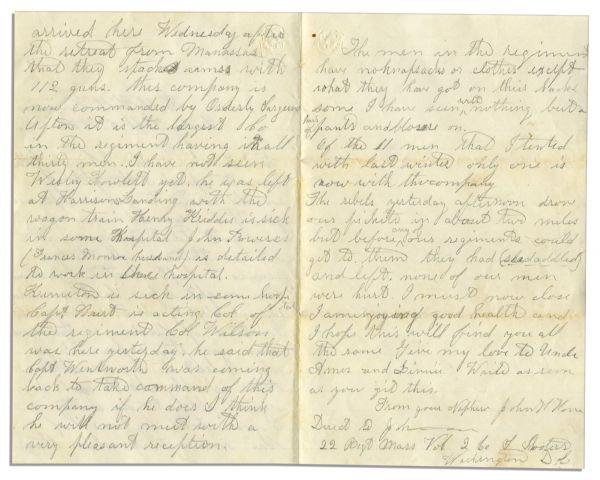 arrived here Wednesday after
the retreat from Manassas
that they stacked arms with
112 guns. This company is
now commanded by Orderly Sargent
Upton it is the largest Co
in the regiment having in all
thirty men. I have not seen
Wesley Howlett yet, he was left
At Harrisons Landing with the
wagon train Henry is sick
in some Hospital John Powers
(Frances Monroe husband) is detailed
to work in there hospital.
is sick in some hosp
Capt Ward is acting Col of
the regiment Col Wilson
was here yesterday. he said that
Capt Wentworth was coming
back to take command of this
company if he does I think
he will not meet with a
very pleasant reception.
The men in the regiment
have no knapsacks or clothes except
what they have got on their backs
some I have seen with nothing but a
pair of pants and blouse on.
Of the 11 men that I tented
with last winter only one is
now with the company
The rebels yesterday afternoon drove
our pickets in about two miles
but before any of our regiments could
get to them they had (skedaddled)
and left. none of our men
were hurt. I must now close
I am enjoying good health and
I hope this will find you all
the same Give my love to Uncle
Amos and Write as soon
as you git this
From your Nephew John H
Direct to John
22 Regt Mass Vol 2 Co S Shooters
Washington D C